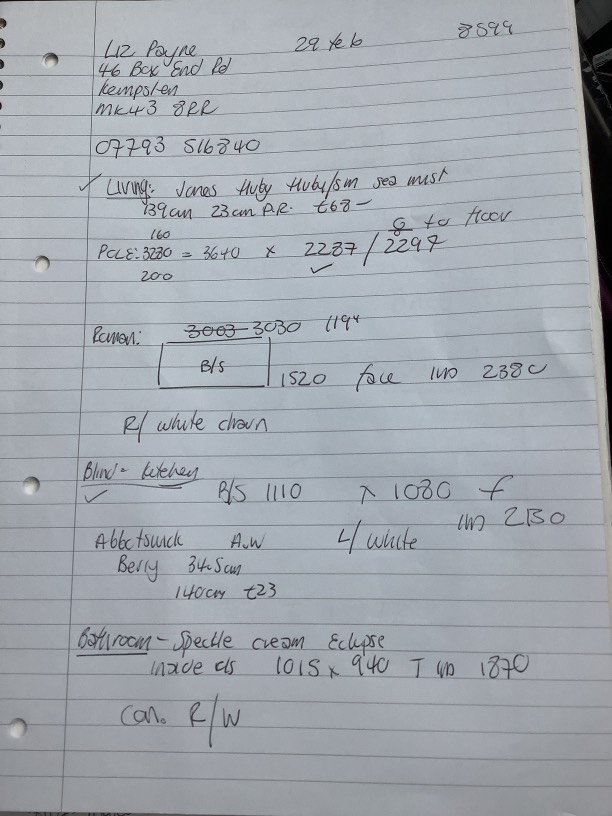 Liz Payne 29 Feb 8599
46 Box End Rd
Kempston
MK43 8RR
07793 516840
✓ Living: Jones Huby Huby/sm sea mist
139cm 23cm P.R. £68 -
160 8 to floor
POLE: 3280 = 3640 x 2287 / 2297
200 ✓
Roman: 3003 3030 1194
B/S
1520 face 2380
R/ white chain
Blind - kitchen
✓ B/S 1110 x 1080 f
2130
Abbotswick A.W L/ white
Berry 34.5cm
140cm £23
Bathroom - Speckle cream Eclipse
inside 1015 x 940 T 1870
Con. R/W